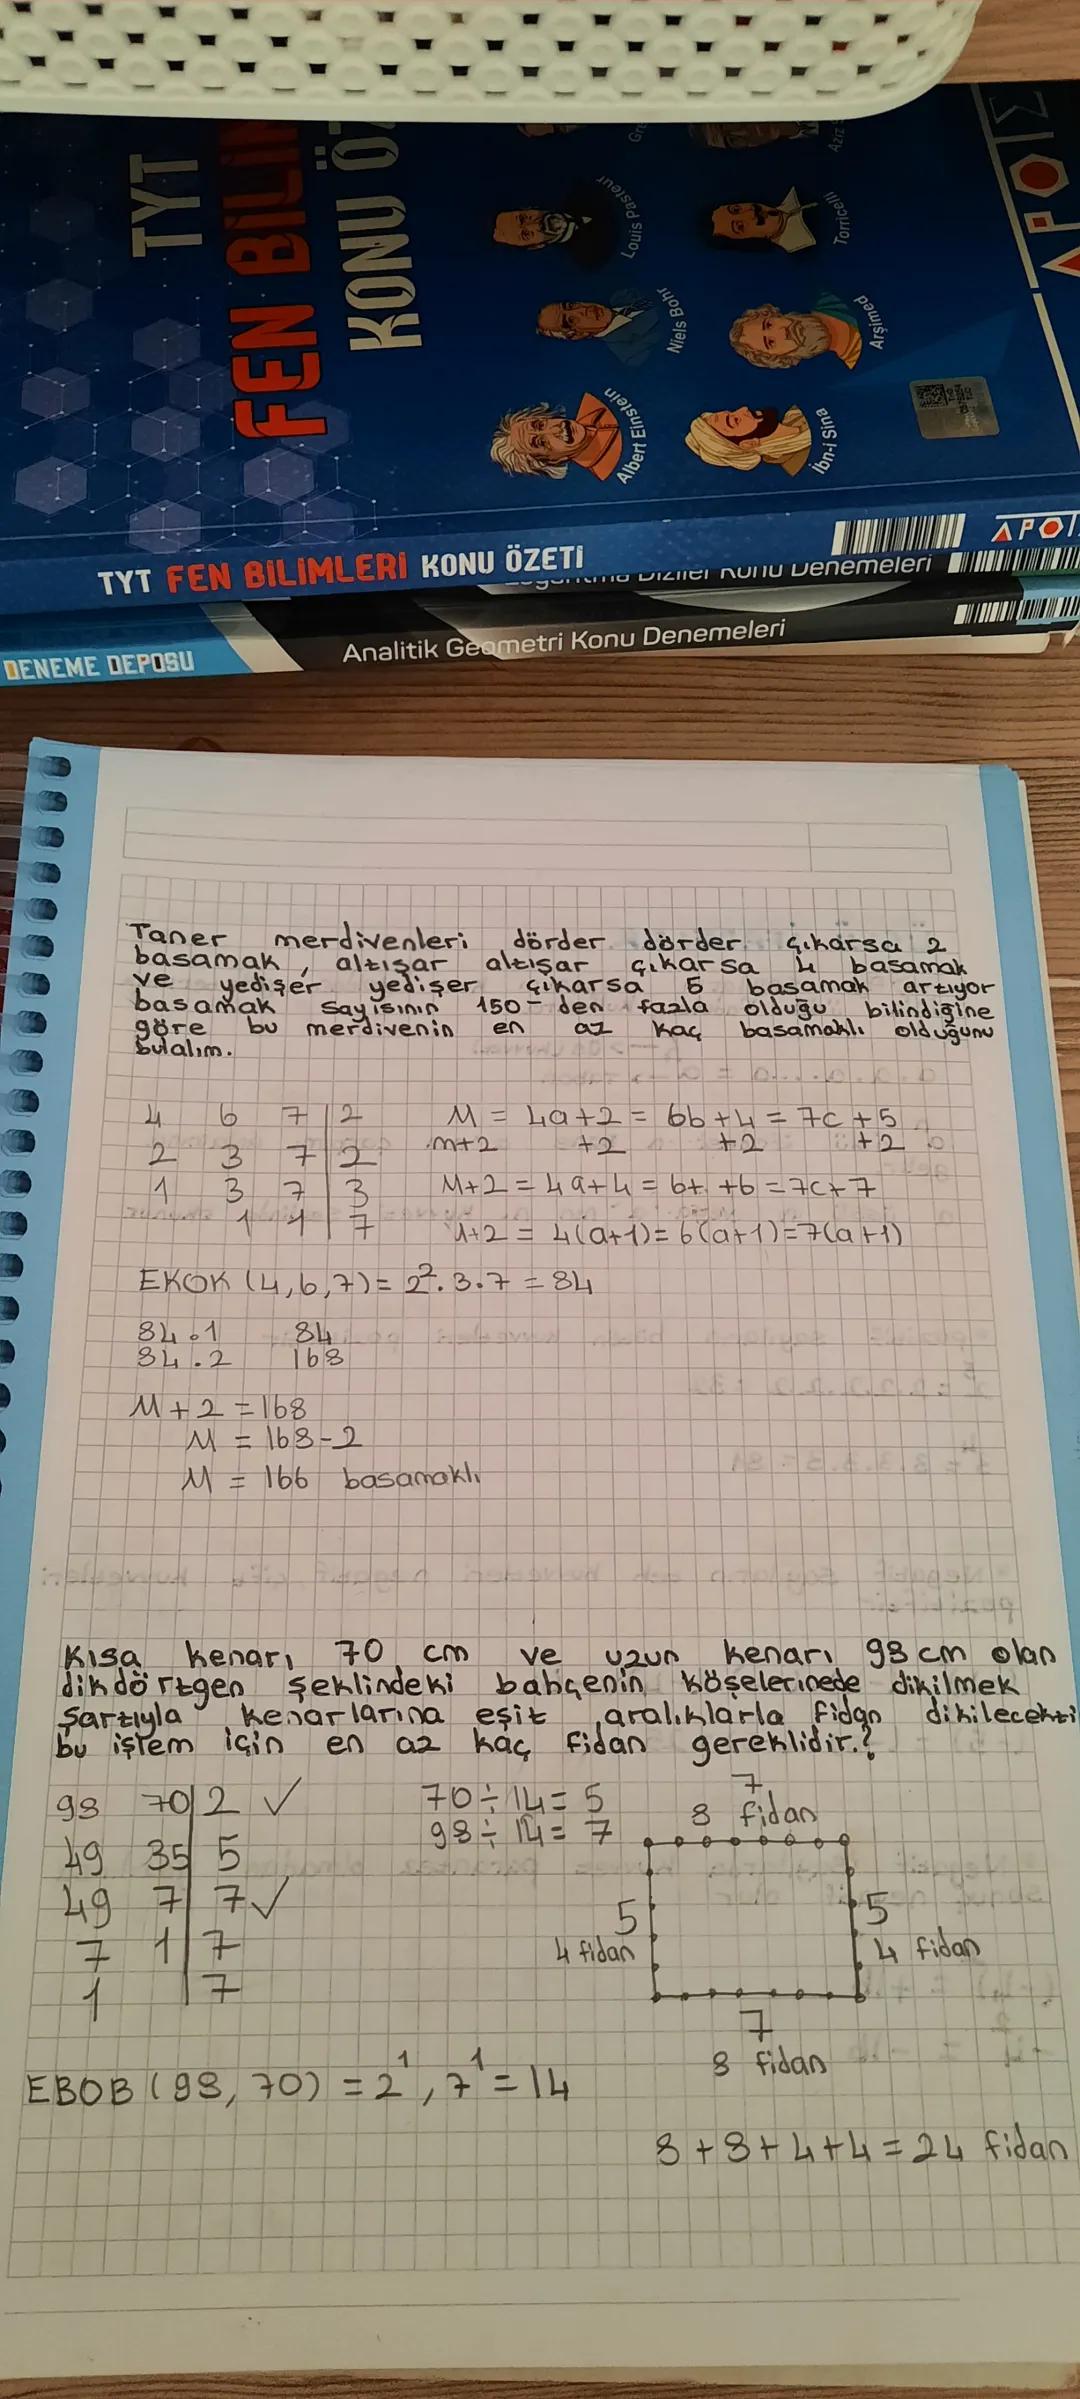 TYT
FEN BİLİM
KONU ÖZ
Louis Pasteur
Torricelli
Niels Bohr
Arşimed
Albert Einstein
İbn-i Sina
TYT FEN BİLİMLERİ KONU ÖZETİ
Diziler Konu Denemeleri
DENEME DEPOSU
Analitik Geometri Konu Denemeleri
Taner merdivenleri dörder dörder çıkarsa 2
basamak, altışar altışar çıkarsa 4 basamak
ve yedişer yedişer çıkarsa 5 basamak artıyor
basamak sayısının 150-den fazla olduğu bilindiğine
göre bu merdivenin en az kaç basamaklı olduğunu
bulalım.
4 6 7 | 2
2 3 7 | 2
1 3 7 | 3
1 1 | 7
M = 4a+2 = 6b+4 = 7c+5
m+2 +2 +2 +2
M+2 = 4a+4 = 6b +6 = 7c+7
M+2 = 4(a+1)= 6(a+1)=7(a+1)
EKOK (4,6,7)= 2².3.7 = 84
84.1 84
84.2 168
M+2 =168
M = 168-2
M = 166 basamaklı
Kısa kenarı 70 cm ve uzun kenarı 98 cm olan
dikdörtgen şeklindeki bahçenin köşelerinede dikilmek
şartıyla kenarlarına eşit aralıklarla fidan dikilecekti
bu işlem için en az kaç fidan gereklidir.?
98 70 | 2 ✓
49 35 | 5
49 7 | 7 ✓
7 1 | 7
1 7
70÷14= 5
98÷14= 7
7
8 fidan
5
4 fidan
5
4 fidan
7
8 fidan
EBOB (98, 70) = 2¹, 7¹ = 14
8+8+4+4=24 fidan